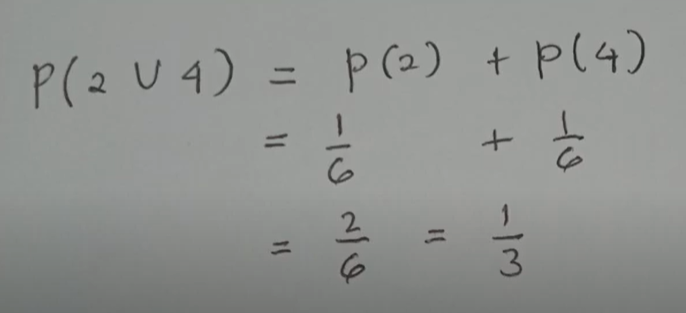 P(2 ∪ 4) = P(2) + P(4)
= 1/6 + 1/6
= 2/6 = 1/3